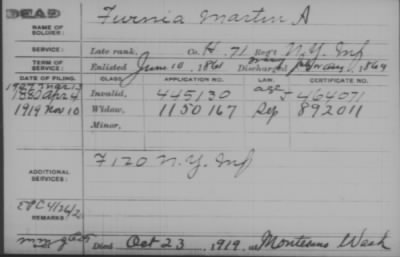 DEAD
NAME OF SOLDIER: Furnia Martin A
SERVICE: Late rank, Co. H. 71 Reg't N.Y. Inf
TERM OF SERVICE: Enlisted June 10, 1861 Discharged 1864
DATE OF FILING. CLASS. APPLICATION NO. LAW. CERTIFICATE NO.
1880 Apr 4 Invalid, 445130 464071
1919 Nov 10 Widow, 1150167 Sep 892011
Minor,
ADDITIONAL SERVICES: F 120 N.Y. Inf
REMARKS:
Died Oct 23, 1919, at Montesano Wash